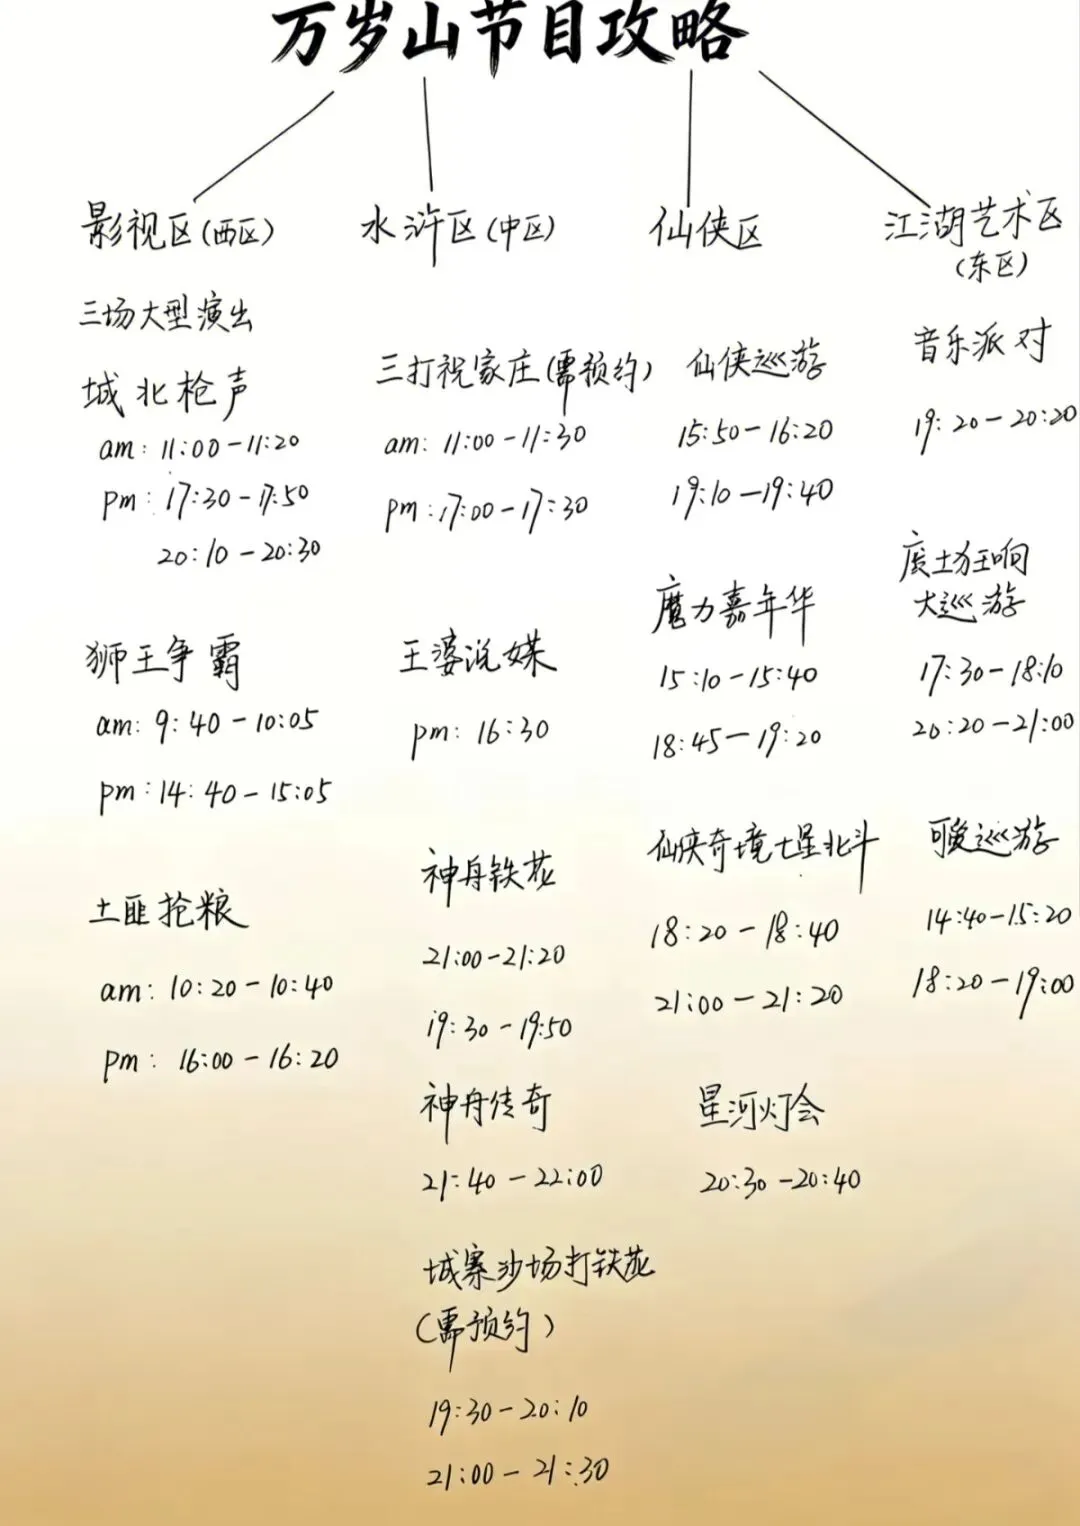 万岁山节目攻略
影视区(西区)
三场大型演出
城北枪声
am: 11:00-11:20
pm: 17:30-17:50
20:10-20:30
狮王争霸
am: 9:40-10:05
pm: 14:40-15:05
土匪抢粮
am: 10:20-10:40
pm: 16:00-16:20
水浒区(中区)
三打祝家庄(需预约)
am: 11:00-11:30
pm: 17:00-17:30
王婆说媒
pm: 16:30
神舟铁花
21:00-21:20
19:30-19:50
神舟传奇
21:40-22:00
城寨沙场打铁花
(需预约)
19:30-20:10
21:00-21:30
仙侠区
仙侠巡游
15:50-16:20
19:10-19:40
魔力嘉年华
15:10-15:40
18:45-19:20
仙侠奇境七星北斗
18:20-18:40
21:00-21:20
星河灯会
20:30-20:40
江湖艺术区
(东区)
音乐派对
19:20-20:20
废土狂响
大巡游
17:30-18:10
20:20-21:00
可爱巡游
14:40-15:20
18:20-19:00